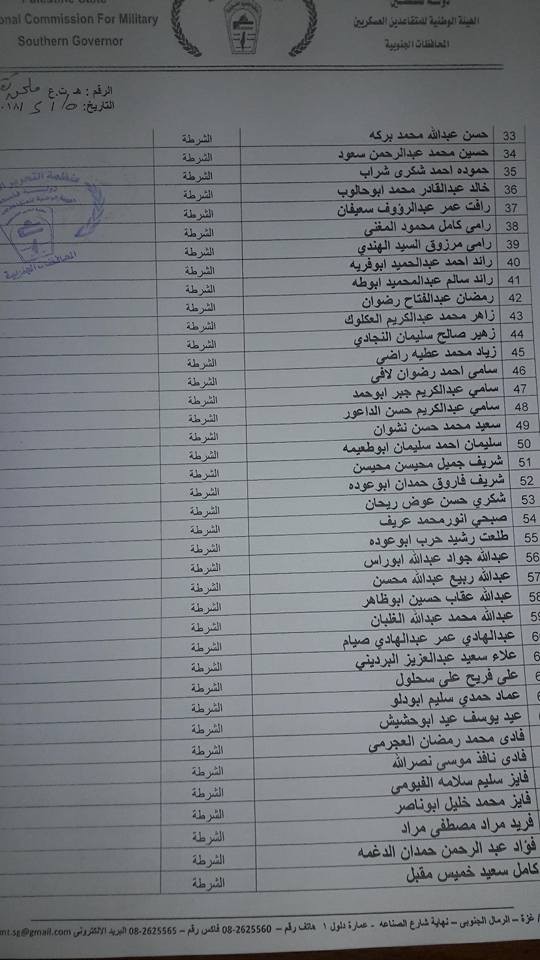 Palestine State
onal Commission For Military
Southern Governor
دولة فلسطين
الهيئة الوطنية للمتقاعدين العسكريين
المحافظات الجنوبية
الرقم : هـ.ت.ع
التاريخ:
33 حسن عبدالله محمد بركه الشرطة
34 حسين محمد عبدالرحمن سعود الشرطة
35 حموده احمد شكرى شراب الشرطة
36 خالد عبدالقادر محمد ابوحالوب الشرطة
37 رافت عمر عبدالرؤوف سعيفان الشرطة
38 رامى كامل محمود المغنى الشرطة
39 رامى مرزوق السيد الهندي الشرطة
40 رائد احمد عبدالحميد ابوفريه الشرطة
41 رائد سالم عبدالمحميد ابوطه الشرطة
42 رمضان عبدالفتاح رضوان الشرطة
43 زاهر محمد عبدالكريم العكلوك الشرطة
44 زهير صالح سليمان النجادي الشرطة
45 زياد محمد عطيه راضي الشرطة
46 سامى احمد رضوان لافى الشرطة
47 سامي عبدالكريم جبر ابوحمد الشرطة
48 سامي عبدالكريم حسن الداعور الشرطة
49 سعيد محمد حسن نشوان الشرطة
50 سليمان احمد سليمان ابوطعيمه الشرطة
51 شريف جميل محيسن محيسن الشرطة
52 شريف فاروق حمدان ابوعوده الشرطة
53 شكري حسن عوض ريحان الشرطة
54 صبحي انورمحمد عريف الشرطة
55 طلعت رشيد حرب ابوعوده الشرطة
56 عبدالله جواد عبدالله ابوراس الشرطة
57 عبدالله ربيع عبدالله محسن الشرطة
58 عبدالله عقاب حسين ابوظاهر الشرطة
59 عبدالله محمد عبدالله الغلبان الشرطة
6 عبدالهادي عمر عبدالهادي صيام الشرطة
6 علاء سعيد عبدالعزيز البرديني الشرطة
6 على فريح على سحلول الشرطة
عماد حمدي سليم ابودلو الشرطة
عيد يوسف عيد ابوحشيش الشرطة
فادى محمد رمضان العجرمى الشرطة
فادى نافذ موسى نصرالله الشرطة
فايز سليم سلامه الفيومي الشرطة
فايز محمد خليل ابوناصر الشرطة
فريد مراد مصطفى مراد الشرطة
فؤاد عبد الرحمن حمدان الدغمه الشرطة
كامل سعيد خميس مقبل الشرطة
غزة – الرمال الجنوبى – نهاية شارع الصناعه - عمارة دلول ١ هاتف رقم – 2625560-08 فاكس رقم – 2625565-08 البريد الالكتروني mt.sg@gmail.com